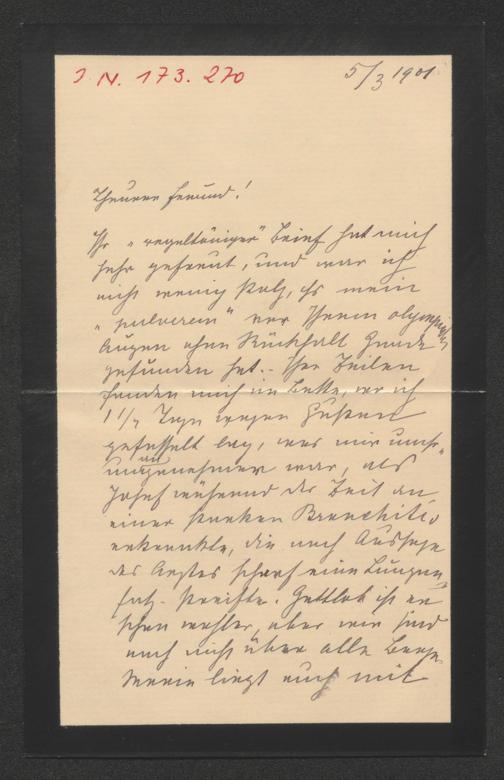 J. N. 173. 270
5/3 1901
Theurer Freund!
Ihr „ " Brief hat mich
sehr gefreut, und war ich
nicht wenig stolz, daß mein
„ " vor Ihrem
Augen ohne Rückhalt Gnade
gefunden hat. - Ihre Zeilen
fanden mich im Bette, wo ich
1 1/2 Tage wegen Husten
gefesselt lag, was mir umso
unangenehmer war, als
Josef während der Zeit an
einer starken Bronchitis
erkrankte, die nach Aussage
des Arztes scharf eine Lungen
entz. streifte. Gottlob ist er
schon wohler, aber wir sind
noch nicht über alle Berge.
liegt auch mit